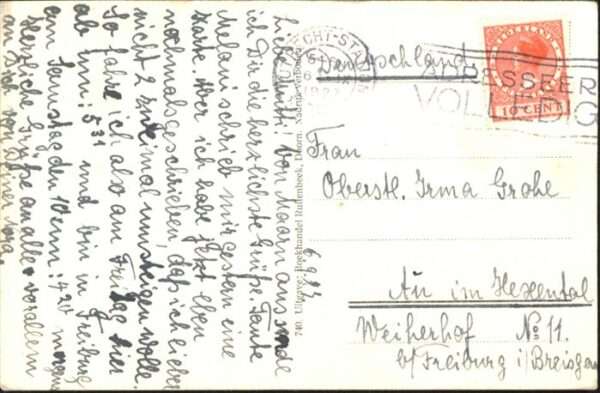 Liebe Mutti! Von Maarn aus sende
ich Dir die herzlichsten Grüße. Tante
Melani schrieb mir gestern eine
Karte. Aber ich habe jetzt eben
nochmals geschrieben, daß ich lieber
nicht 2 zweimal umsteigen wolle.
So fahre ich also am Freitag hier
ab 5³⁹ und bin in Freiburg
am Samstag den 10ten: 4²⁰ morgens
Herzliche Grüße an alle vor allem
an Dich von Deiner
Uitgave: Boekhandel Ruitenbeek, Doorn.
ECHT-STA
Deutschland
NEDERLAND
10 CENT
ADRESSEER
VOLLEDIG
Frau
Oberstl. Irma Grohe
Au im Hexental
Weiherhof No 11.
b/Freiburg i/Breisgau